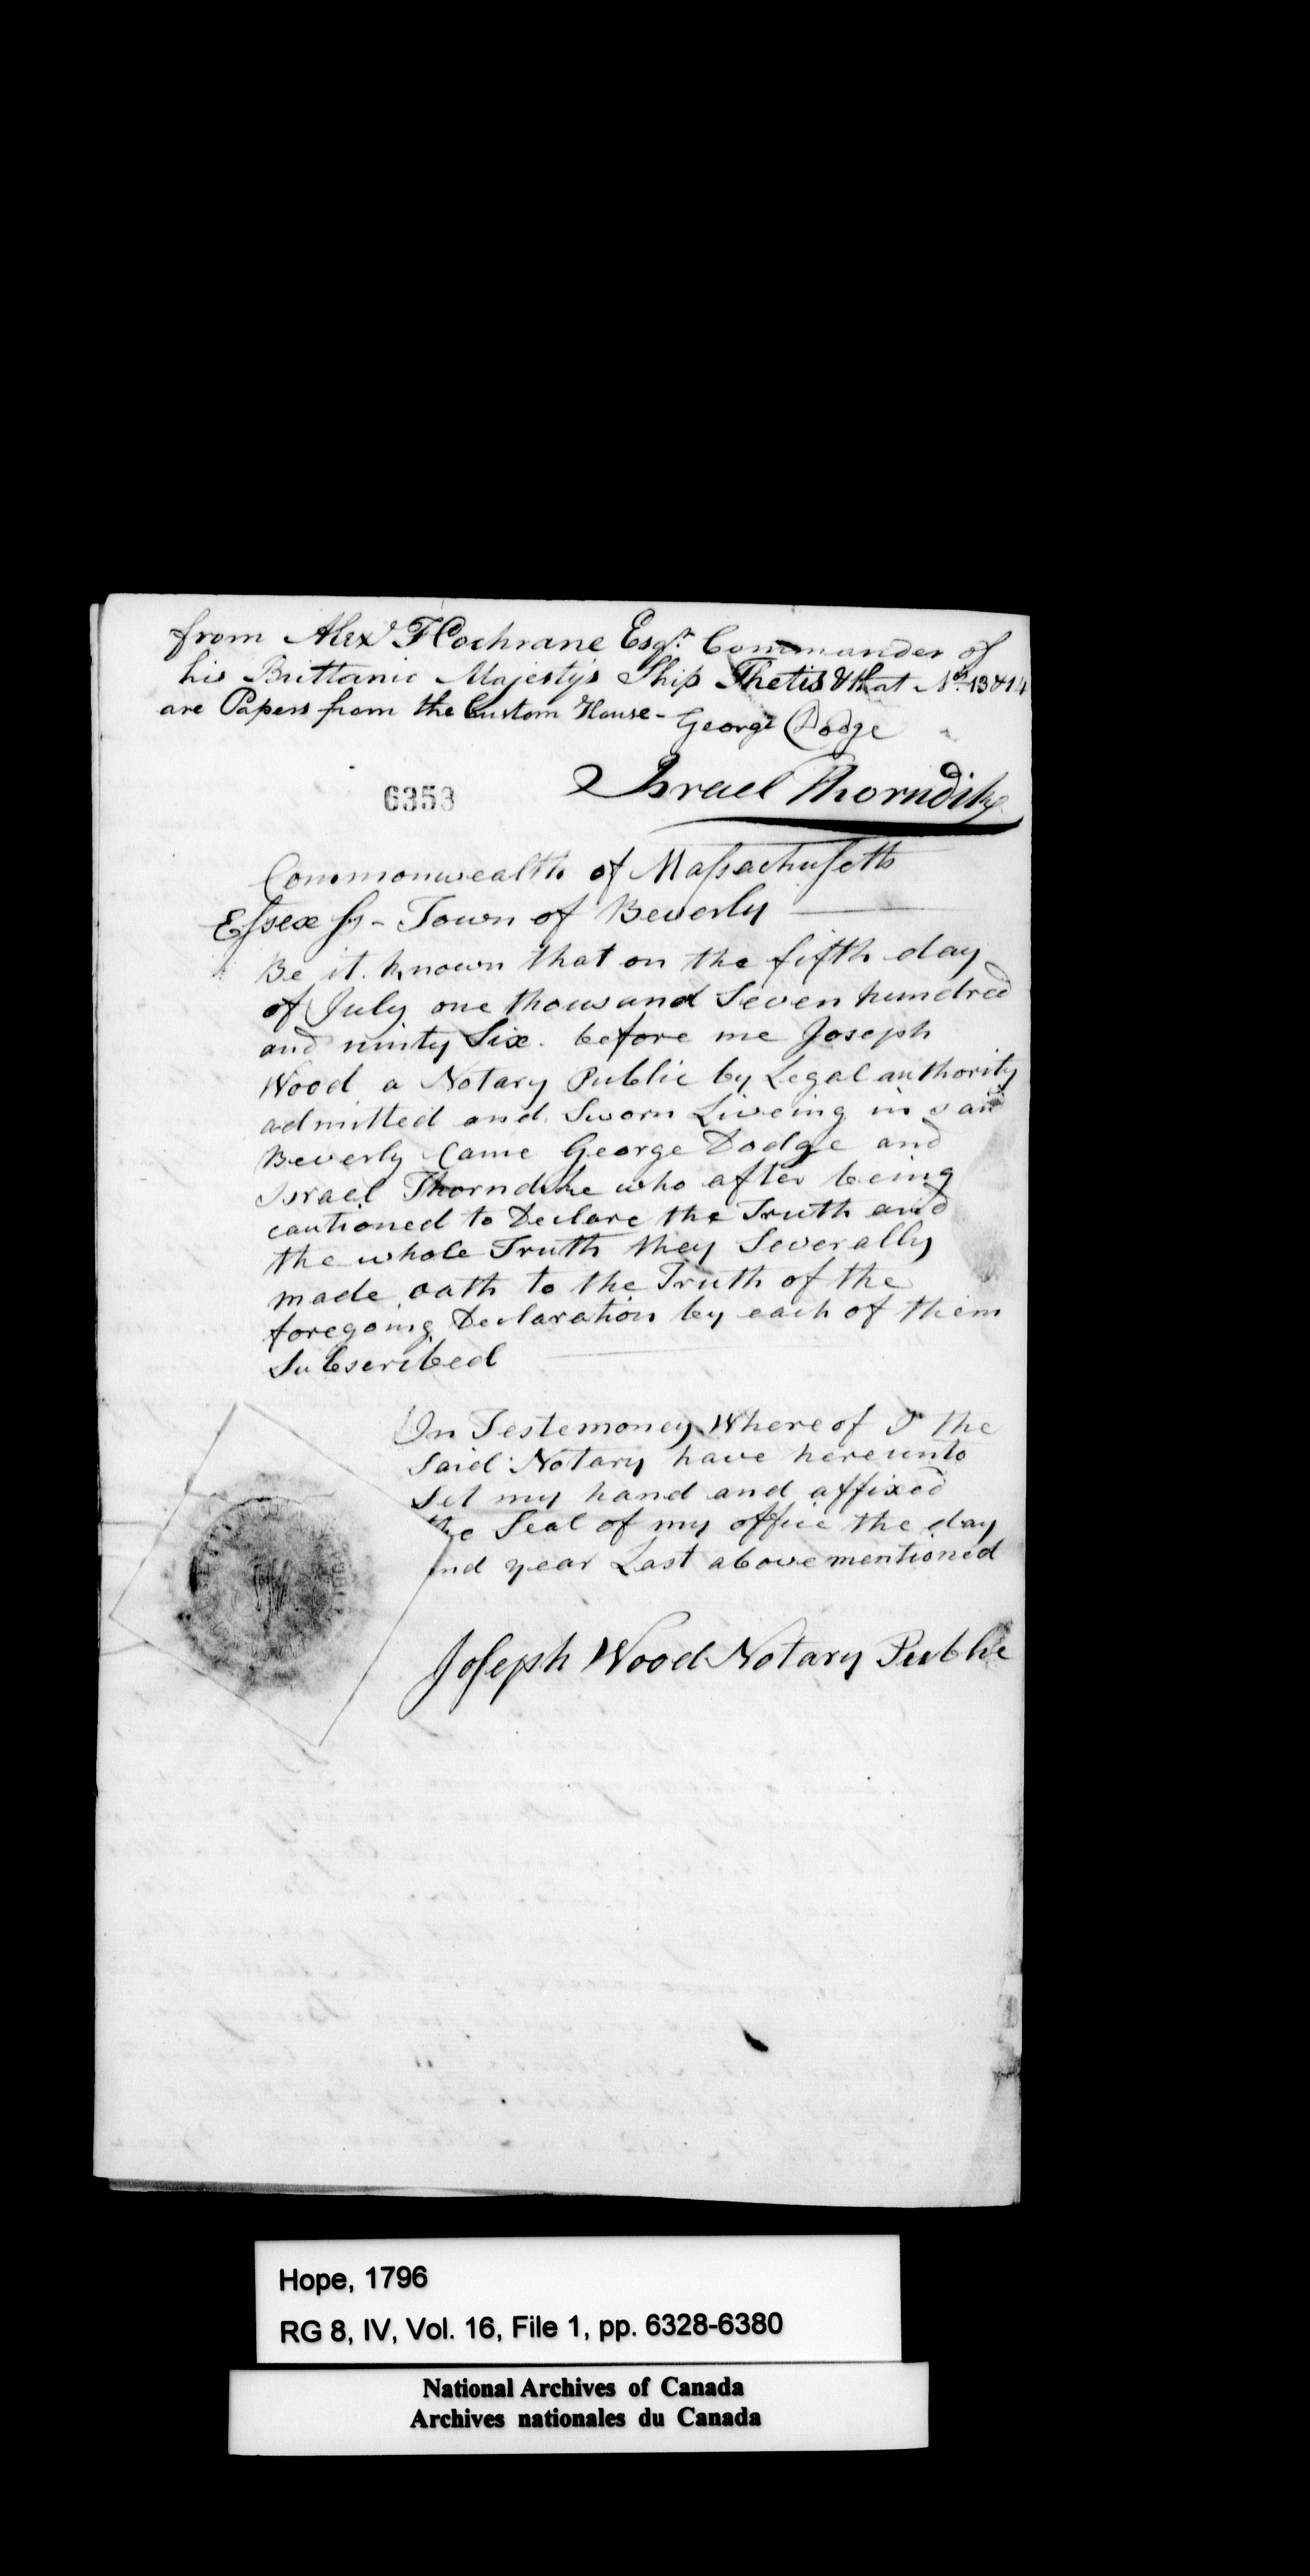 from Alexr F Cochrane Esqr. Commander of
his Brittanic Majesty's Ship Thetis & that No. 13 & 14
are Papers from the Custom House - George Dodge
Israel Thorndike
6353
Commonwealth of Massachusetts
Essex Ss - Town of Beverly
Be it known that on the fifth day
of July one thousand Seven hundred
and ninty Six. before me Joseph
Wood a Notary Public by Legal authority
admitted and Sworn Liveing in said
Beverly Came George Dodge and
Israel Thorndike who after being
cautioned to Declare the Truth and
the whole Truth they Severally
made oath to the Truth of the
foregoing Declaration by each of them
Subscribed
In Testemoney Where of I the
Said Notary have hereunto
Set my hand and affixed
the Seal of my office the day
and year Last above mentioned
Joseph Wood Notary Public
Hope, 1796
RG 8, IV, Vol. 16, File 1, pp. 6328-6380
National Archives of Canada
Archives nationales du Canada